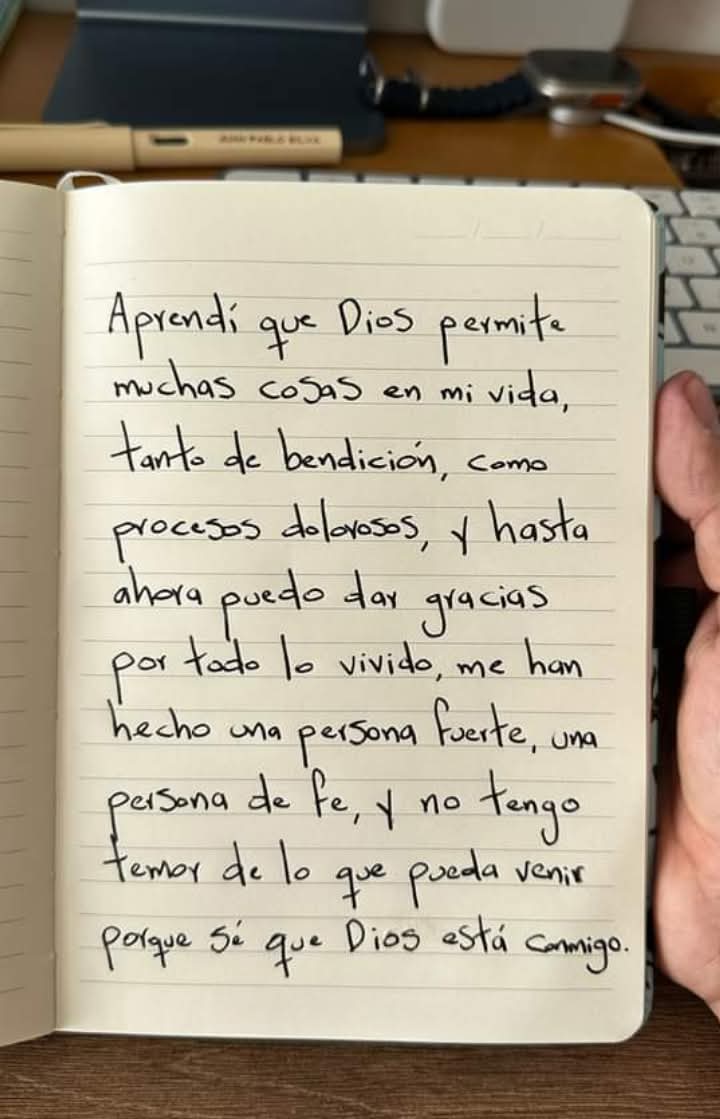 Aprendí que Dios permite
muchas cosas en mi vida,
tanto de bendición, como
procesos dolorosos, y hasta
ahora puedo dar gracias
por todo lo vivido, me han
hecho una persona fuerte, una
persona de fe, y no tengo
temor de lo que pueda venir
porque sé que Dios está conmigo.